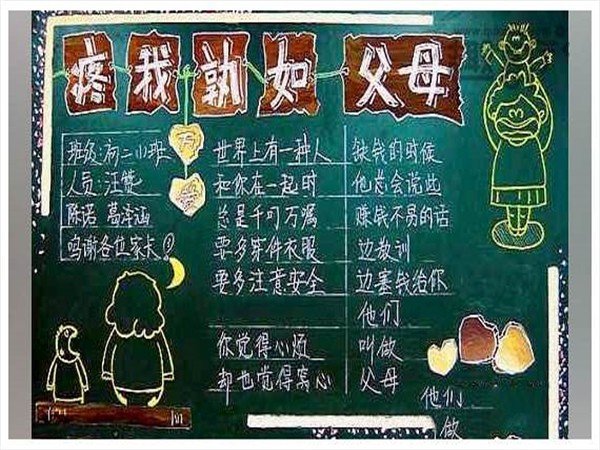 疼我孰如父母
人员:汪
陈诺 葛泽涵
鸣谢各位家长!
万
世界上有一种人
和你在一起时
总是千叮万嘱
要多穿件衣服
要多注意安全
你觉得心烦
却也觉得窝心
缺钱的时候
他总会说些
赚钱不易的话
边教训
边塞钱给你
他们
叫做
父母
他们
做